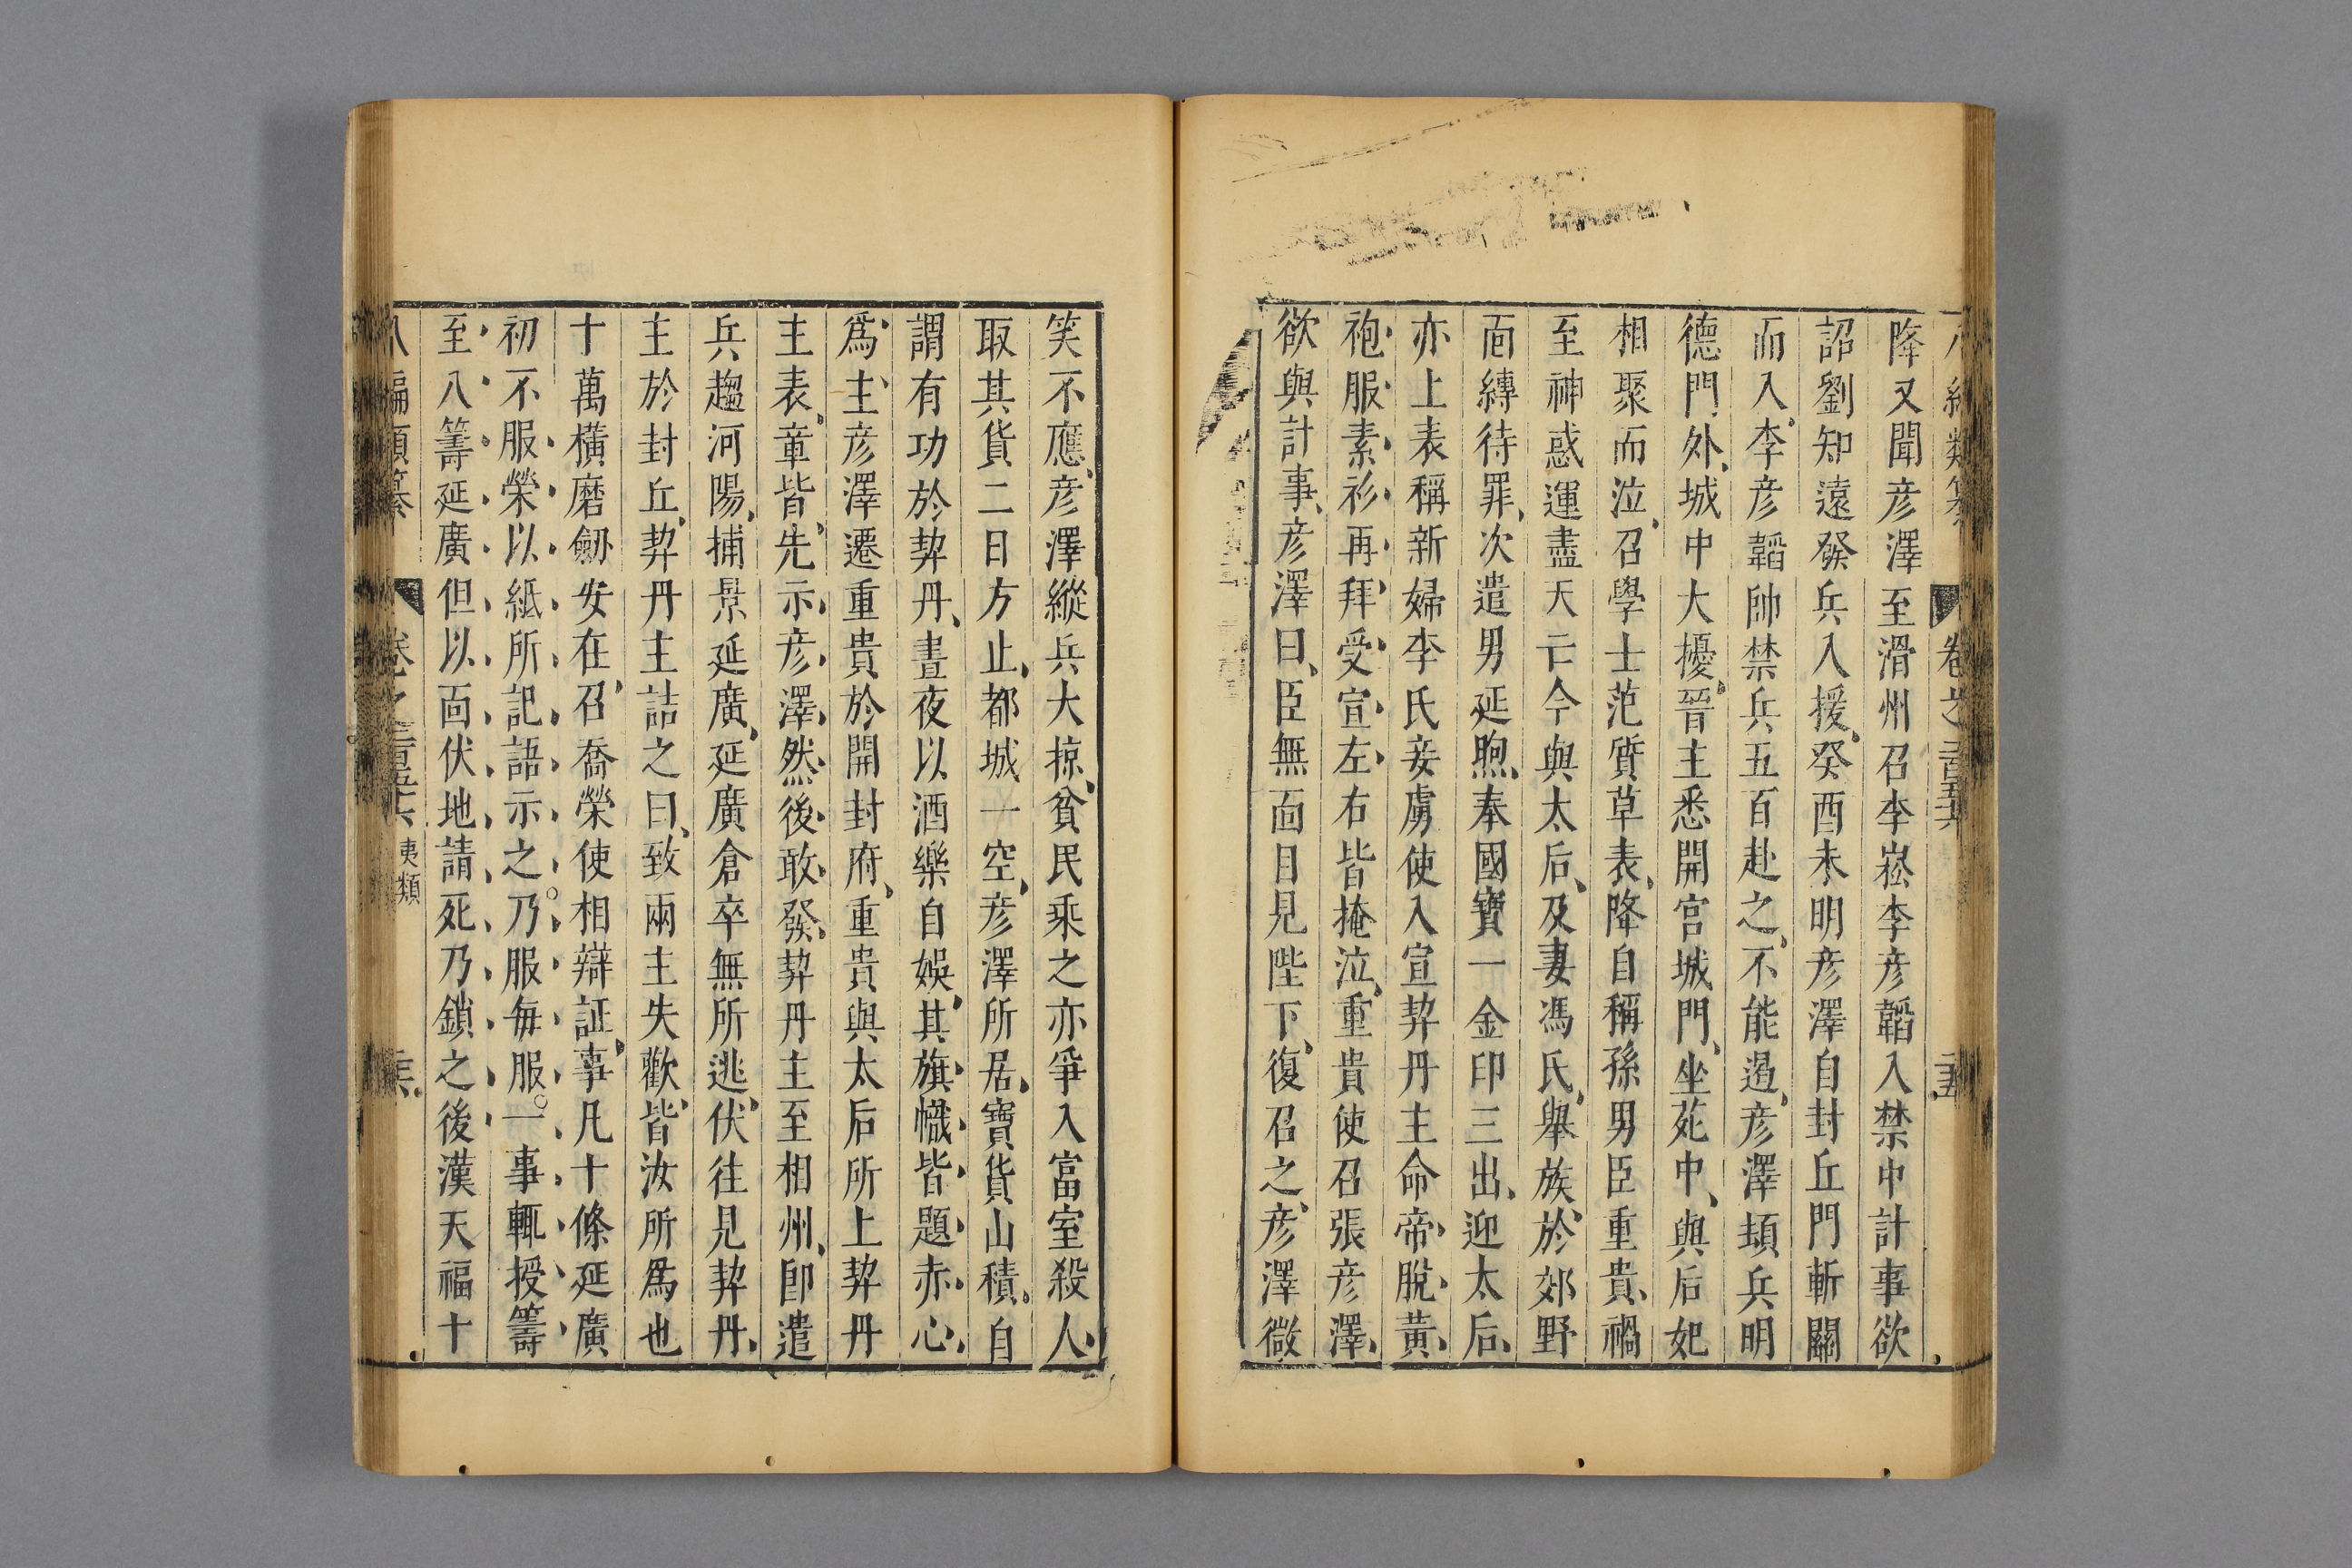 降又聞彦澤至滑州召李崧李彦韜入禁中計事欲
詔劉知遠發兵入援癸酉未明彦澤自封丘門斬關
而入李彦韜帥禁兵五百赴之不能遏彦澤頓兵明
德門外城中大擾晉主悉開宮城門坐苑中與后妃
相聚而泣召學士范質草表降自稱孫男臣重貴禍
至神惑運盡天亡今與太后及妻馮氏舉族於郊野
面縛待罪次遣男延煦奉國寶一金印三出迎太后
亦上表稱新婦李氏妾虜使入宣契丹主命帝脫黃
袍服素衫再拜受宣左右皆掩泣重貴使召張彦澤
欲與計事彦澤曰臣無面目見陛下復召之彦澤微
笑不應彦澤縱兵大掠貧民乘之亦爭入富室殺人
取其貨二日方止都城一空彦澤所居寶貨山積自
謂有功於契丹晝夜以酒樂自娛其旗幟皆題赤心
爲主彦澤遷重貴於開封府重貴與太后所上契丹
主表章皆先示彦澤然後敢發契丹主至相州卽遣
兵趨河陽捕景延廣延廣倉卒無所逃伏往見契丹
主於封丘契丹主詰之曰致兩主失歡皆汝所爲也
十萬橫磨劒安在召喬榮使相辯証事凡十條延廣
初不服榮以紙所記語示之乃服每服一事輒授籌
至八籌延廣但以面伏地請死乃鎖之後漢天福十
八編類纂 卷之 夷類